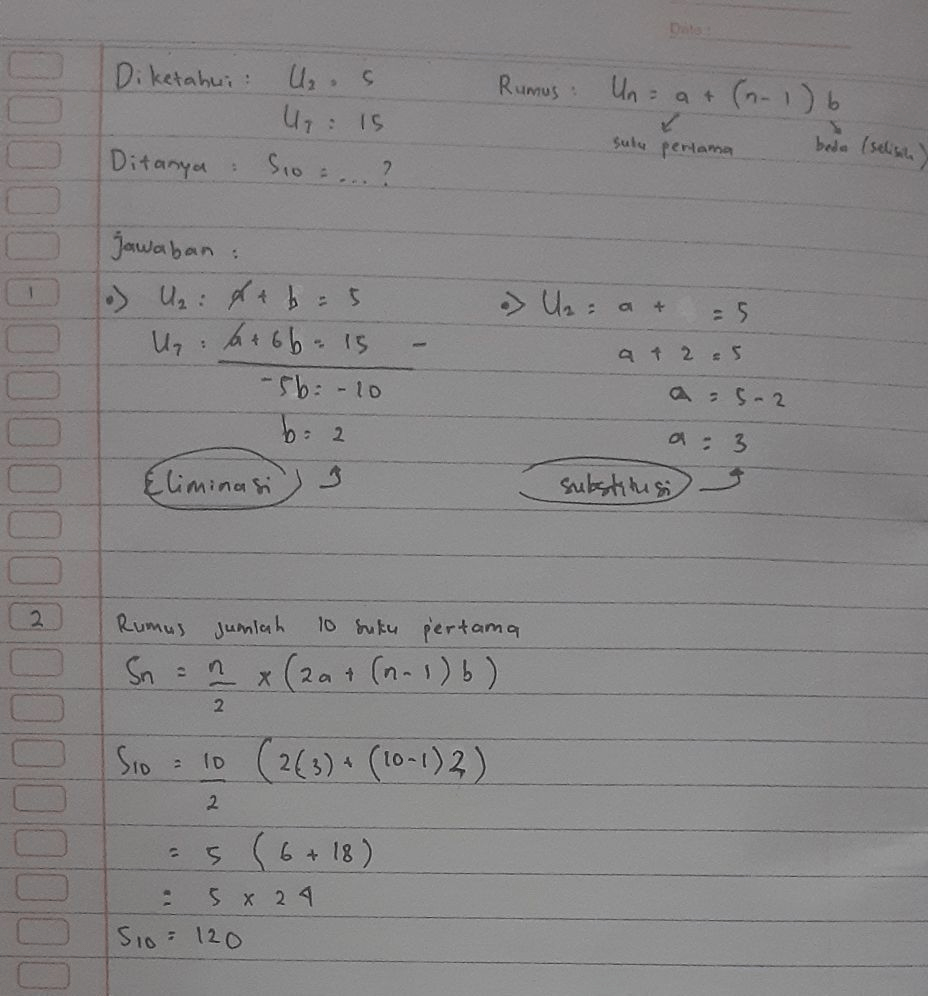 Date:
Diketahui: U₂ = 5
U₇ = 15
Ditanya : S₁₀ = ...?
Rumus : Un = a + (n-1) b
suku pertama
beda (selisih)
Jawaban :
1
•) U₂ : a + b = 5
U₇ : a + 6b = 15 -
-5b = -10
b = 2
Eliminasi
•) U₂ = a + = 5
a + 2 = 5
a = 5-2
a = 3
substitusi
2
Rumus jumlah 10 suku pertama
Sn = n/2 x (2a + (n-1) b)
S₁₀ = 10/2 (2(3) + (10-1) 2)
= 5 (6 + 18)
= 5 x 24
S₁₀ = 120